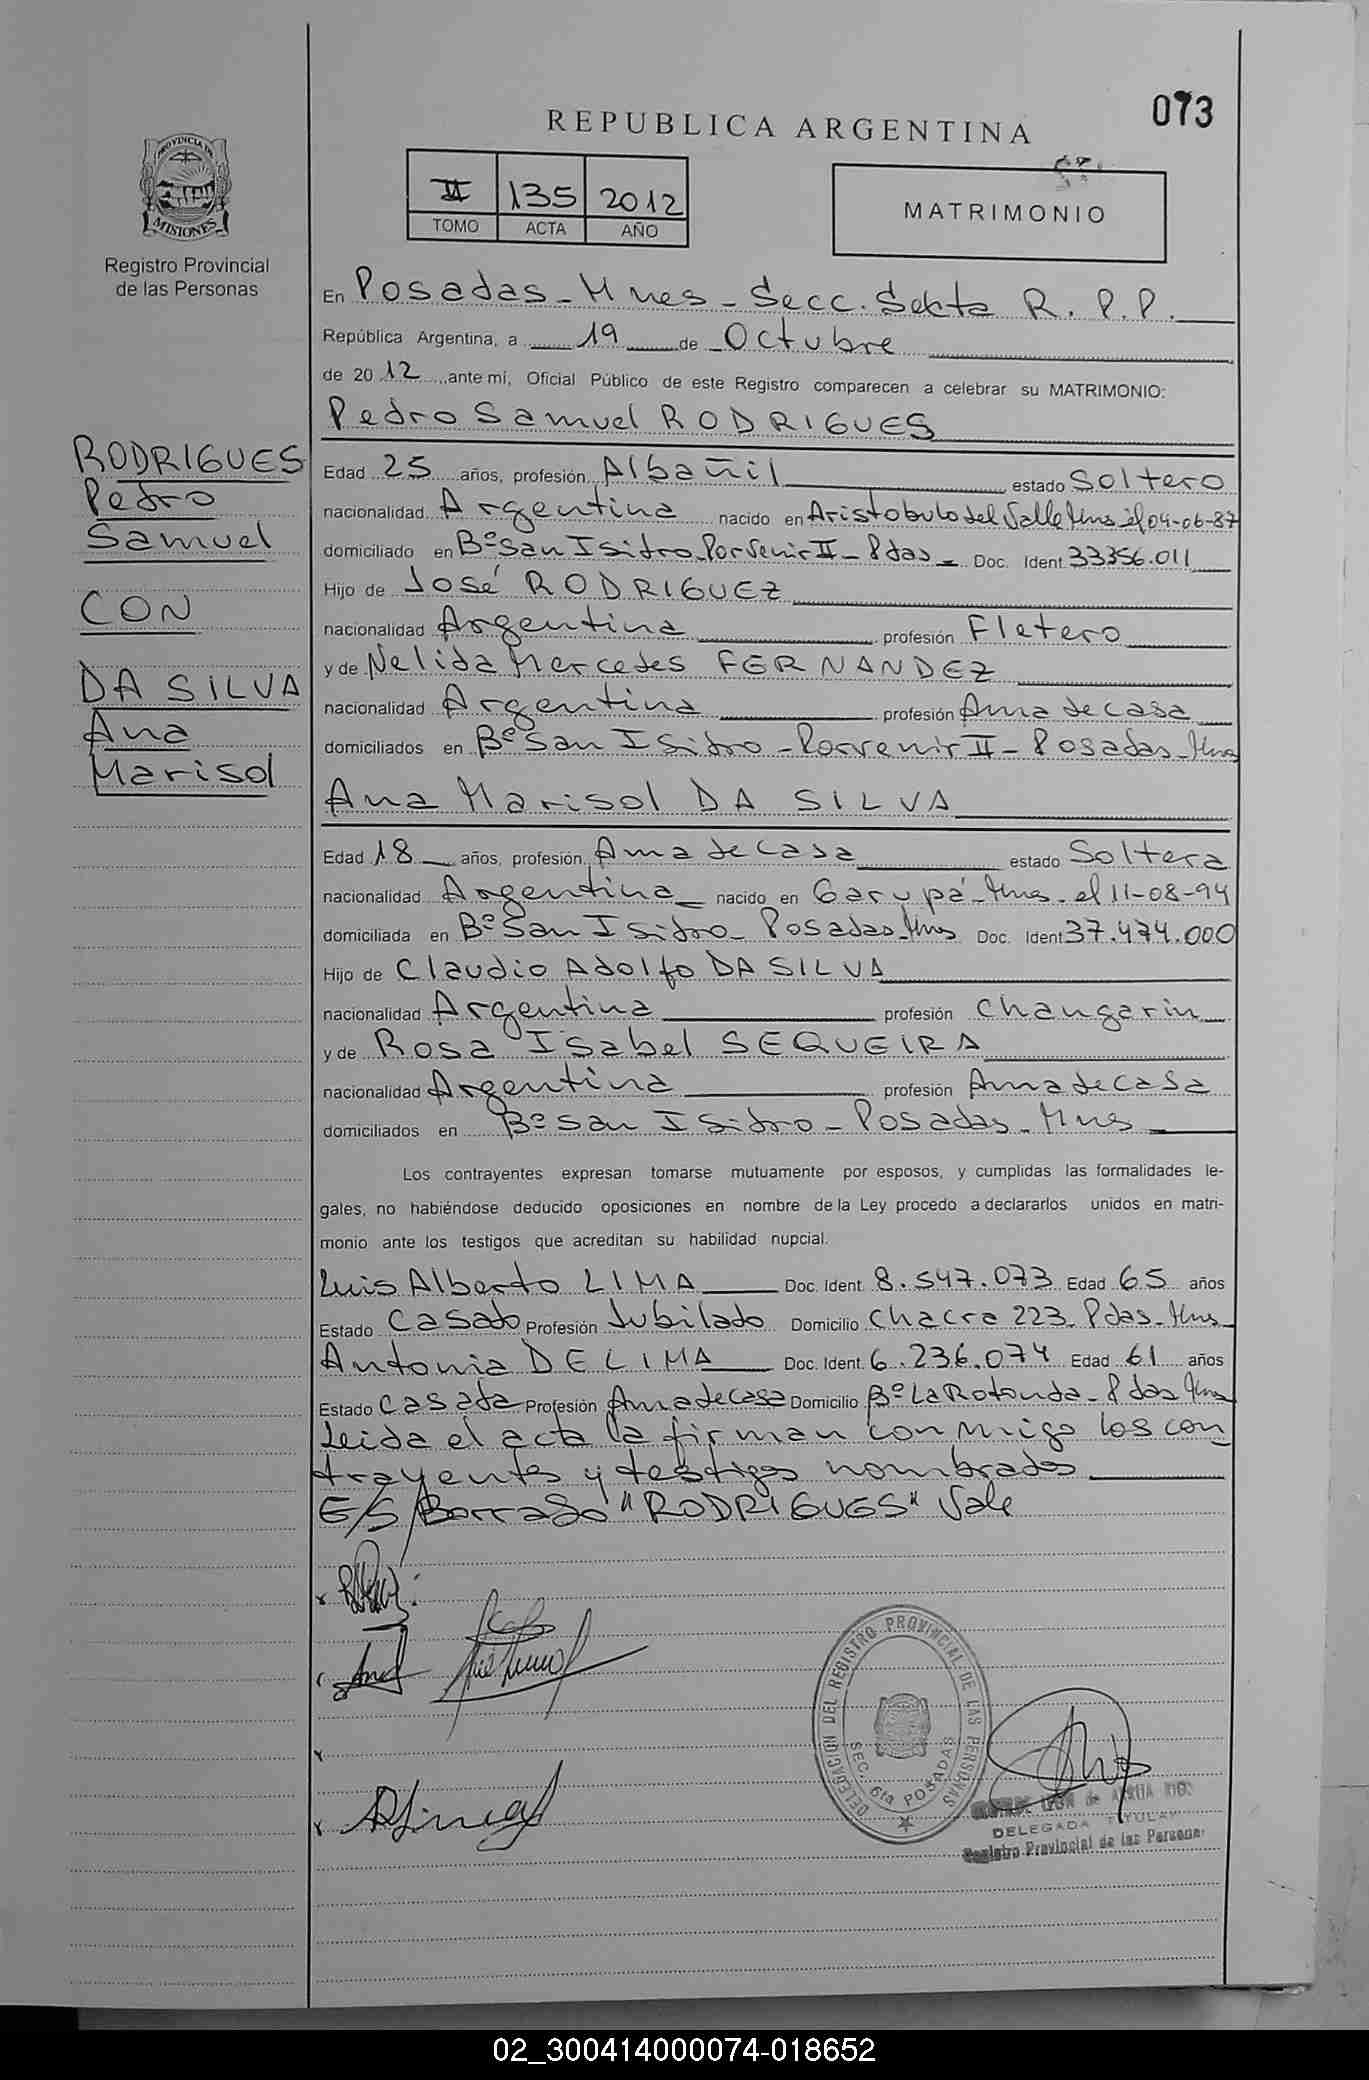 073
REPUBLICA ARGENTINA
PROVINCIA DE
MISIONES
Registro Provincial
de las Personas
II 135 2012
TOMO ACTA AÑO
MATRIMONIO
RODRIGUES
Pedro
Samuel
CON
DA SILVA
Ana
Marisol
En Posadas - Mnes - Secc. Sexta R. P. P.
República Argentina, a 19 de Octubre
de 2012, ante mí, Oficial Público de este Registro comparecen a celebrar su MATRIMONIO:
Pedro Samuel RODRIGUES
Edad 25 años, profesión Albañil estado Soltero
nacionalidad Argentina nacido en Aristobulo del Valle Mns el 04-06-87
domiciliado en Bº San Isidro Porvenir II - Pdas - Doc. Ident. 33356.011
Hijo de José RODRIGUEZ
nacionalidad Argentina profesión Fletero
y de Nelida Mercedes FERNANDEZ
nacionalidad Argentina profesión Ama de casa
domiciliados en Bº San Isidro - Porvenir II - Posadas - Mns
Ana Marisol DA SILVA
Edad 18 años, profesión Ama de casa estado Soltera
nacionalidad Argentina nacido en Garupá - Mns - el 11-08-94
domiciliada en Bº San Isidro - Posadas - Mns Doc. Ident 37.474.000
Hijo de Claudio Adolfo DA SILVA
nacionalidad Argentina profesión Changarin
y de Rosa Isabel SEQUEIRA
nacionalidad Argentina profesión Ama de casa
domiciliados en Bº San Isidro - Posadas - Mns
Los contrayentes expresan tomarse mutuamente por esposos, y cumplidas las formalidades le-
gales, no habiéndose deducido oposiciones en nombre de la Ley procedo a declararlos unidos en matri-
monio ante los testigos que acreditan su habilidad nupcial.
Luis Alberto LIMA Doc. Ident. 8.547.073 Edad 65 años
Estado Casado Profesión Jubilado Domicilio Chacra 223 - Pdas - Mns
Antonia DE LIMA Doc. Ident. 6.236.074 Edad 61 años
Estado Casada Profesión Ama de casa Domicilio Bº La Rotonda - Pdas Mns
Leida el acta la firman conmigo los con
trayentes y testigos nombrados
E/S/Borrado "RODRIGUES" Vale
DELEGACION DEL REGISTRO PROVINCIAL DE LAS PERSONAS
SEC. 6ta POSADAS
DELEGADA TITULAR
Registro Provincial de las Personas
02_300414000074-018652